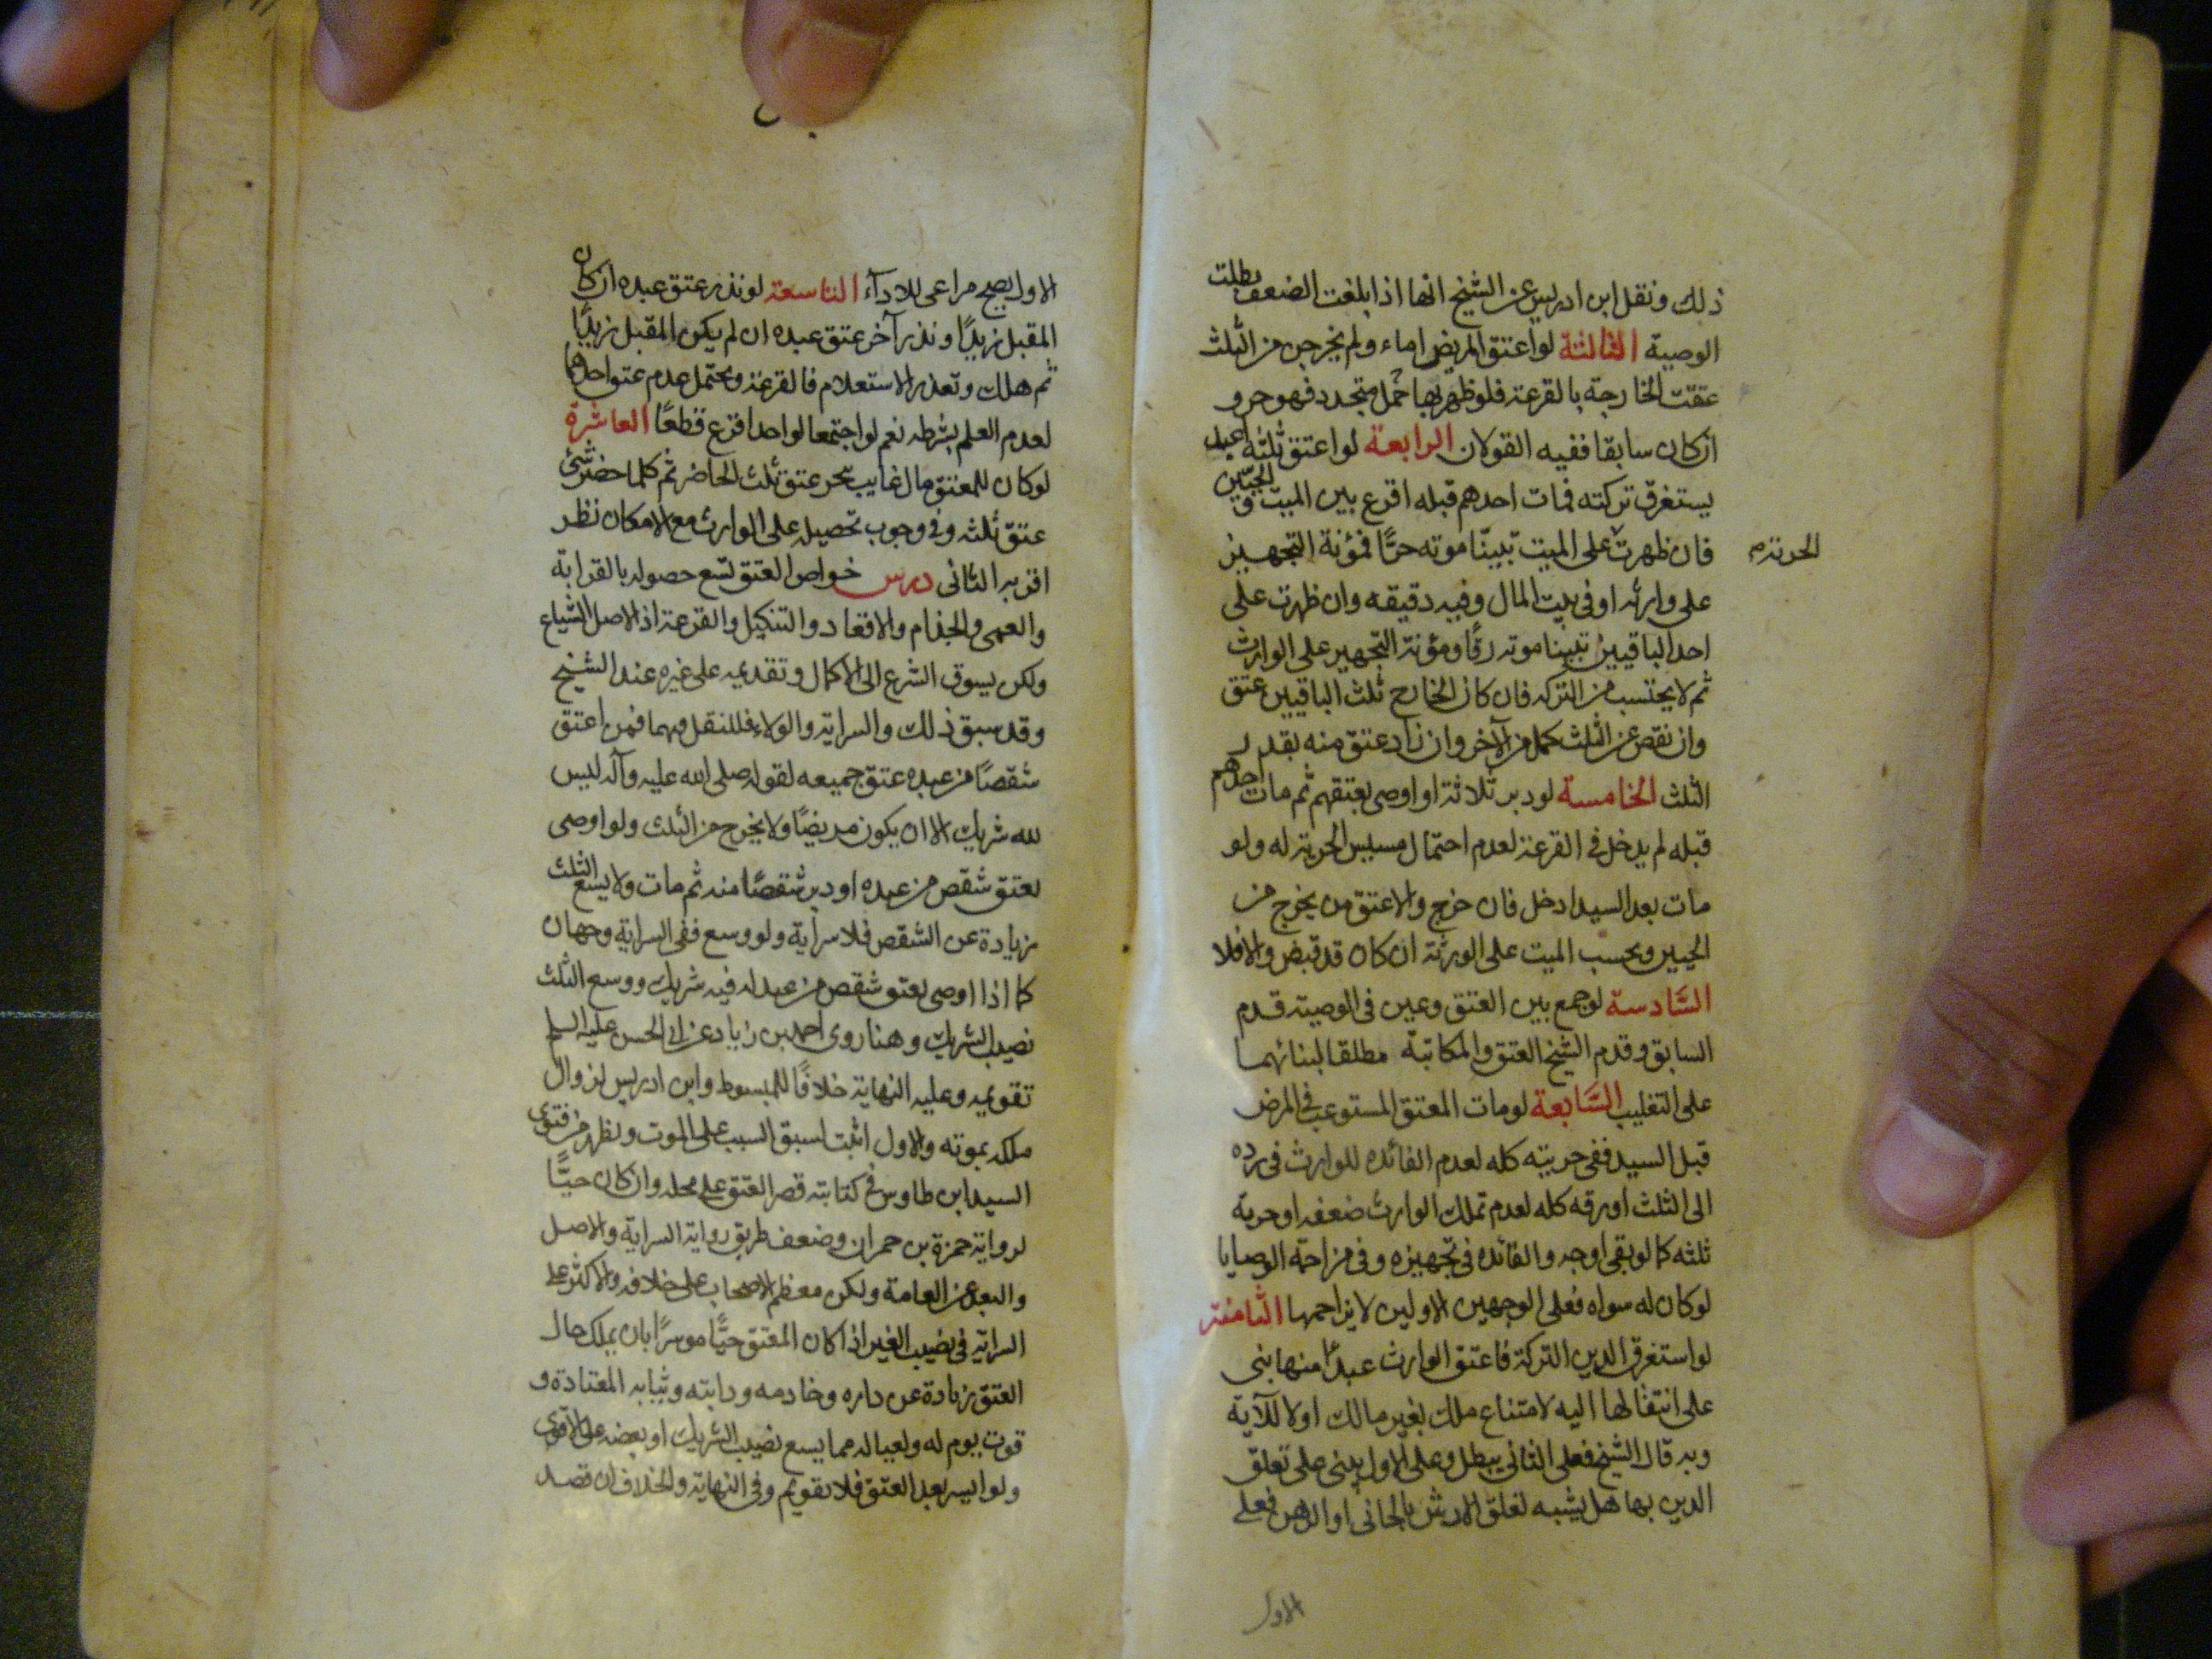 ذلك ونقل ابن ادريس عن الشيخ انها اذا بلغت الضعف بطلت
الوصية الثالثة لو اعتق المريض اماء ولم يخرجن من الثلث
عتقت الخارجة بالقرعة فلو ظهر بها حمل متجدد فهو حر و
ان كان سابقا ففيه القولان الرابعة لو اعتق ثلثة اعبد
يستغرق تركته فمات احدهم قبله اقرع بين الميت و الحيّين
فان ظهرت على الميت تبيّنا موته حرًّا فمؤنة التجهيز
الحرية م
على وارثه او في بيت المال وفيه دقيقه وان ظهرت على
احد الباقيين تبينا موته رقًا ومؤنة التجهيز على الوارث
ثم لا يحتسب من التركه فان كان الخارج ثلث الباقيين عتق
وان نقص عن الثلث كمل من الآخر وان زاد عتق منه بقدر
الثلث الخامسة لو دبر ثلاثة او اوصى بعتقهم ثم مات احدهم
قبله لم يدخل في القرعة لعدم احتمال مسيس الحرية له ولو
مات بعد السيد ادخل فان خرج والا عتق من يخرج من
الحيين ويحسب الميت على الورثة ان كان قد قبض والا فلا
السّادسة لو جمع بين العتق وعين في الوصية قدم
السابق وقدم الشيخ العتق والمكاتبة مطلقا لبنائهما
على التغليب السّابعة لو مات المعتق المستوعب في المرض
قبل السيد ففي حريته كله لعدم الفائده للوارث في رده
الى الثلث او رقه كله لعدم تملك الوارث ضعفه او حرية
ثلثه كما لو بقي اوجه والفائده في تجهيزه وفي مزاحمة الوصايا
لو كان له سواه فعلى الوجهين الاولين لا يزاحمها الثامنة
لو استغرق الدين التركة فاعتق الوارث عبدًا منها بنى
على انتقالها اليه لامتناع ملك بغير مالك اولا للآية
وبه قال الشيخ فعلى الثاني يبطل وعلى الاول يبنى على تعلق
الدين بها هل يشبه تعلق الارش بالجاني او الرهن فعلى
الاول
الاول يصح مراعى للاداء التاسعة لو نذر عتق عبده ان كان
المقبل زيدًا ونذر آخر عتق عبده ان لم يكن المقبل زيدًا
ثم هلك وتعذر الاستعلام فالقرعة ويحتمل عدم عتق احدهما
لعدم العلم بشرطه نعم لو اجتمعا لواحد اقرع قطعًا العاشرة
لو كان للمعتق مال غايب تحرر عتق ثلث الحاضر ثم كلما حضر شئ
عتق ثلثه وفي وجوب تحصيله على الوارث مع الامكان نظر
اقربه الثاني درس خواص العتق تسع حصوله بالقرابة
والعمى والجذام والاقعاد والتنكيل والقرعة اذ الاصل الشياع
ولكن يسوق الشرع الى الاكمال وتقديمه على غيره عند الشيخ
وقد سبق ذلك والسراية والولاء فللنقل فيهما فمن اعتق
شقصًا من عبده عتق جميعه لقوله صلى الله عليه وآله ليس
لله شريك الا ان يكون مريضًا ولا يخرج من الثلث ولو اوصى
بعتق شقص من عبده او دبر شقصًا منه ثم مات ولا يسع الثلث
زيادة عن الشقص فلا سراية ولو وسع ففي السراية وجهان
كما اذا اوصى بعتق شقص من عبد له فيه شريك ووسع الثلث
نصيب الشريك وهنا روى احمد بن زياد عن ابي الحسن عليه السلم
تقويمه وعليه النهاية خلافًا للمبسوط وابن ادريس لزوال
ملكه بموته والاول اثبت لسبق السبب على الموت ويظهر من فتوى
السيد ابن طاوس في كتابته قصر العتق على محله وان كان حيًّا
لرواية حمزة بن حمران وضعف طريق رواية السراية والاصل
والبعد عن العامة ولكن معظم الاصحاب على خلافه والاكثر على
السراية في نصيب الغير اذا كان المعتق حيًّا موسرًا بان يملك حال
العتق زيادة عن داره وخادمه ودابته وثيابه المعتادة و
قوت يوم له ولعياله مما يسع نصيب الشريك او بعضه على الاقوى
ولو ايسر بعد العتق فلا تقويم وفي النهاية والخلاف ان قصد